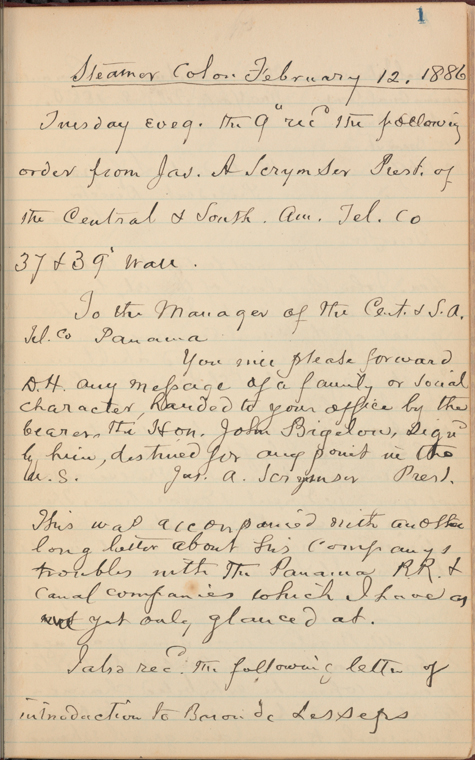 1
Steamer Colon February 12, 1886
Tuesday eveg. the 9" rec'd the following
order from Jas. A Scrymser Prest. of
the Central & South. Am. Tel. Co
37 & 39 Wall.
To the Manager of the Cent. & S. A.
Tel. Co Panama
You will please forward
D.H. any message of a family or social
character, handed to your office by the
bearer, the Hon. John Bigelow, sign'd
by him, destined for any point in the
U.S. Jas. A. Scrymser Prest.
This was accompanied with another
long letter about his companys
troubles with The Panama RR. &
Canal companies which I have as
yet only glanced at.
I also rec'd. the following letter of
introduction to Baron de Lesseps